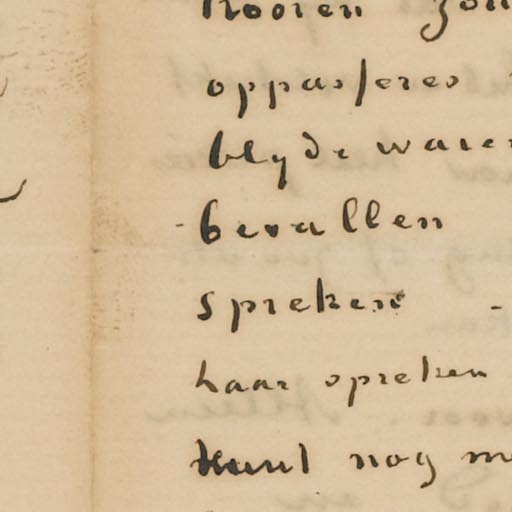 hooren zou
oppasseres
blyde waren
bevallen
spreken -
haar spreken
kunt nog m